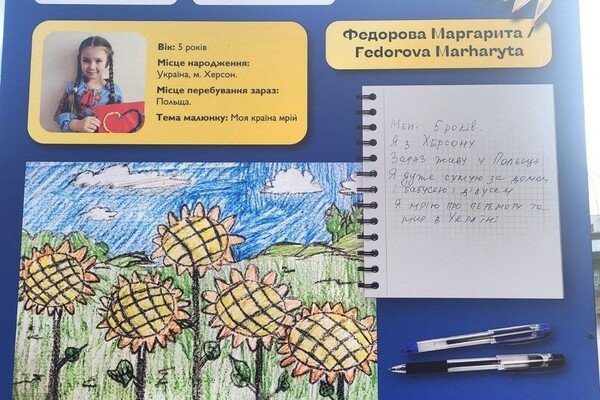 Вік: 5 років
Місце народження:
Україна, м. Херсон.
Місце перебування зараз:
Польща.
Тема малюнку: Моя країна мрій
Федорова Маргарита /
Fedorova Marharyta
Мені 5 років.
Я з Херсону
Зараз живу у Польщь
Я дуже сумую за домом
і бабусею і дідусем
Я мрію про перемогу та
мир в Україні